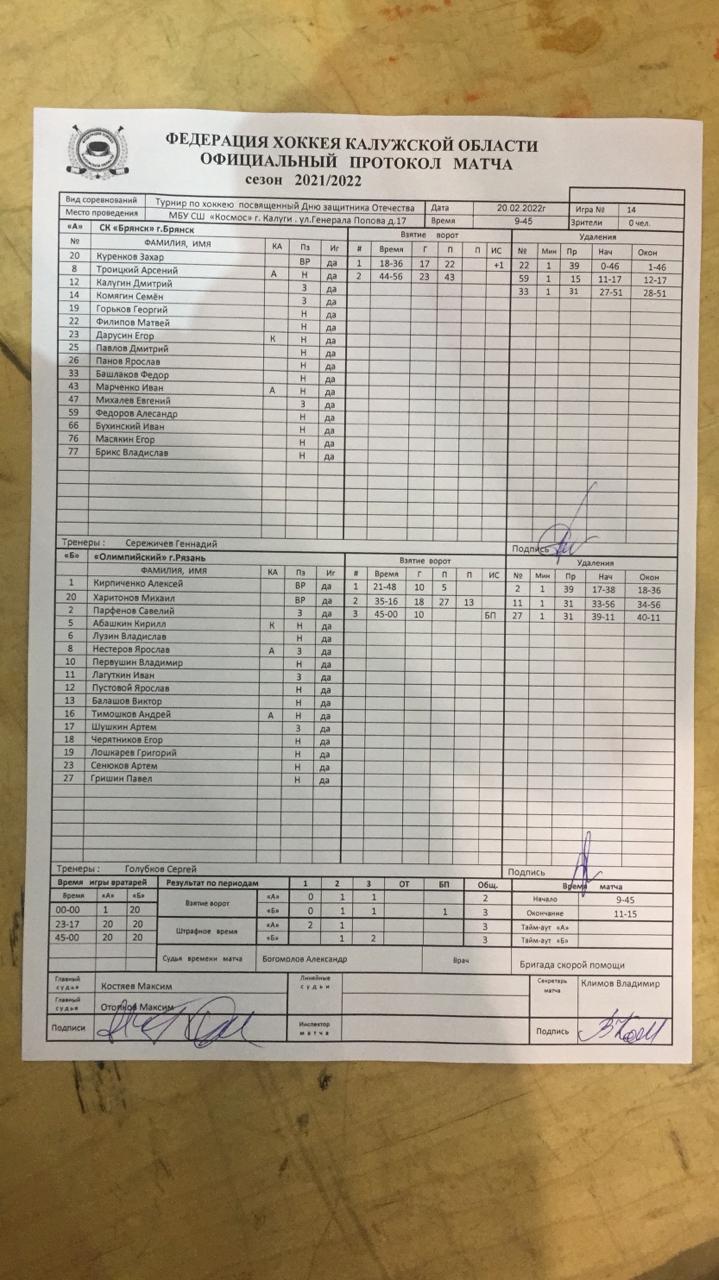 ФЕДЕРАЦИЯ ХОККЕЯ КАЛУЖСКОЙ ОБЛАСТИ
ОФИЦИАЛЬНЫЙ ПРОТОКОЛ МАТЧА
сезон 2021/2022
Вид соревнований Турнир по хоккею посвященный Дню защитника Отечества Дата 20.02.2022г Игра № 14
Место проведения МБУ СШ «Космос» г. Калуги . ул.Генерала Попова д.17 Время 9-45 Зрители 0 чел.
«А» СК «Брянск» г.Брянск Взятие ворот Удаления
№ ФАМИЛИЯ, ИМЯ КА Пз Иг # Время Г П П ИС № Мин Пр Нач Окон
20 Куренков Захар ВР да 1 18-36 17 22 +1 22 1 39 0-46 1-46
8 Троицкий Арсений А Н да 2 44-56 23 43 59 1 15 11-17 12-17
12 Калугин Дмитрий З да 33 1 31 27-51 28-51
14 Комягин Семён З да
19 Горьков Георгий Н да
22 Филипов Матвей Н да
23 Дарусин Егор К Н да
25 Павлов Дмитрий Н да
26 Панов Ярослав Н да
33 Башлаков Федор Н да
43 Марченко Иван А Н да
47 Михалев Евгений З да
59 Федоров Алесандр Н да
66 Бухинский Иван Н да
76 Масякин Егор Н да
77 Брикс Владислав Н да
Тренеры : Сережичев Геннадий Подпись
«Б» «Олимпийский» г.Рязань Взятие ворот Удаления
ФАМИЛИЯ, ИМЯ КА Пз Иг # Время Г П П ИС № Мин Пр Нач Окон
1 Кирпиченко Алексей ВР да 1 21-48 10 5 2 1 39 17-38 18-36
20 Харитонов Михаил ВР да 2 35-16 18 27 13 11 1 31 33-56 34-56
2 Парфенов Савелий З да 3 45-00 10 БП 27 1 31 39-11 40-11
5 Абашкин Кирилл К Н да
6 Лузин Владислав Н да
8 Нестеров Ярослав А З да
10 Первушин Владимир Н да
11 Лагуткин Иван З да
12 Пустовой Ярослав Н да
13 Балашов Виктор Н да
16 Тимошков Андрей А Н да
17 Шушкин Артем З да
18 Черятников Егор Н да
19 Лошкарев Григорий Н да
23 Сенюков Артем Н да
27 Гришин Павел Н да
Тренеры : Голубков Сергей Подпись
Время игры вратарей Результат по периодам 1 2 3 ОТ БП Общ. Время матча
Время «А» «Б» Взятие ворот «А» 0 1 1 2 Начало 9-45
00-00 1 20 «Б» 0 1 1 1 3 Окончание 11-15
23-17 20 20 Штрафное время «А» 2 1 3 Тайм-аут «А»
45-00 20 20 «Б» 1 2 3 Тайм-аут «Б»
Судья времени матча Богомолов Александр Врач Бригада скорой помощи
Главный судья Костяев Максим Линейные судьи Секретарь матча Климов Владимир
Главный судья Максим
Подписи Инспектор матча Подпись